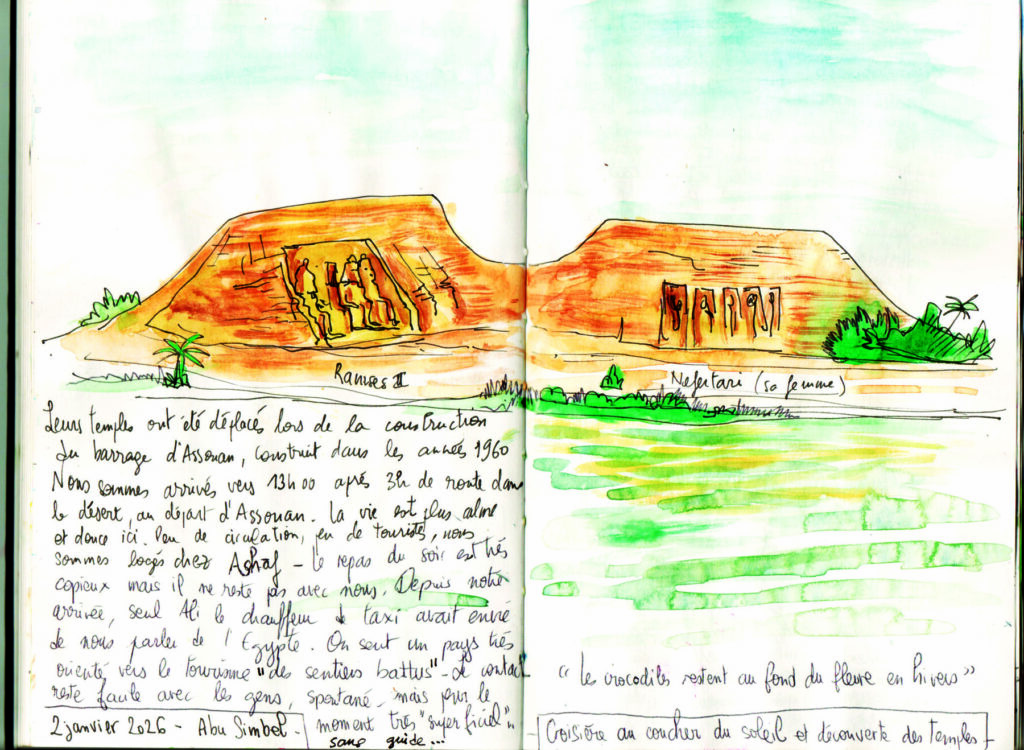 Ramses II
Nefertari (sa femme)
Leurs temples ont été déplacés lors de la construction
du barrage d'Assouan, construit dans les année 1960
Nous sommes arrivés vers 13h00 après 3h de route dans
le désert, au départ d'Assouan. La vie est plus calme
et douce ici. Peu de circulation, peu de touristes, nous
sommes logés chez Ashraf - le repas du soir est très
copieux mais il ne reste pas avec nous. Depuis notre
arrivée, seul Ali le chauffeur de taxi avait envie
de nous parler de l'Egypte. On sent un pays très
orienté vers le tourisme "des sentiers battus" - Le contact
reste facile avec les gens, spontané - mais pour le
moment très "superficiel"..
sans guide...
2 janvier 2026 - Abu Simbel -
"Les crocodiles restent au fond du fleuve en hivers"
- Croisière au coucher du soleil et découverte des temples -